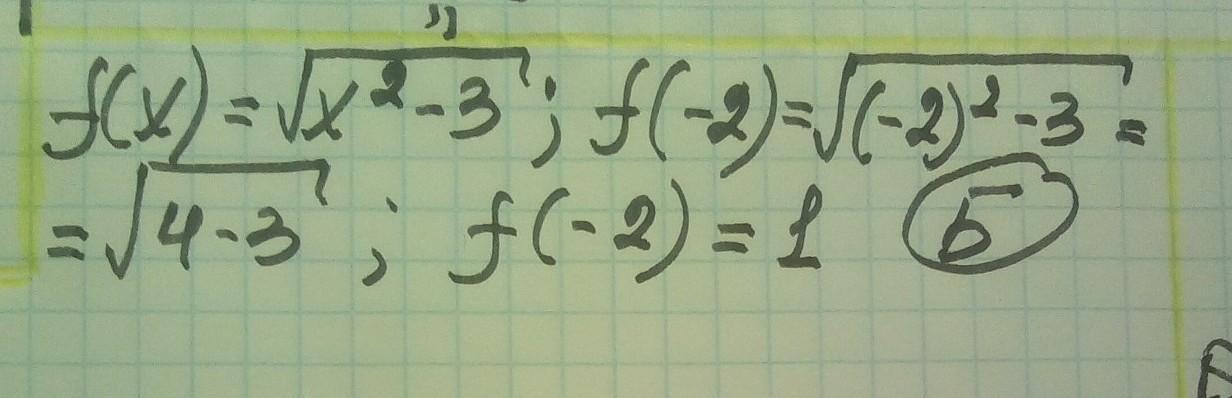 f(x) = √(x² - 3) ; f(-2) = √((-2)² - 3) =
= √(4 - 3) ; f(-2) = 1 Б